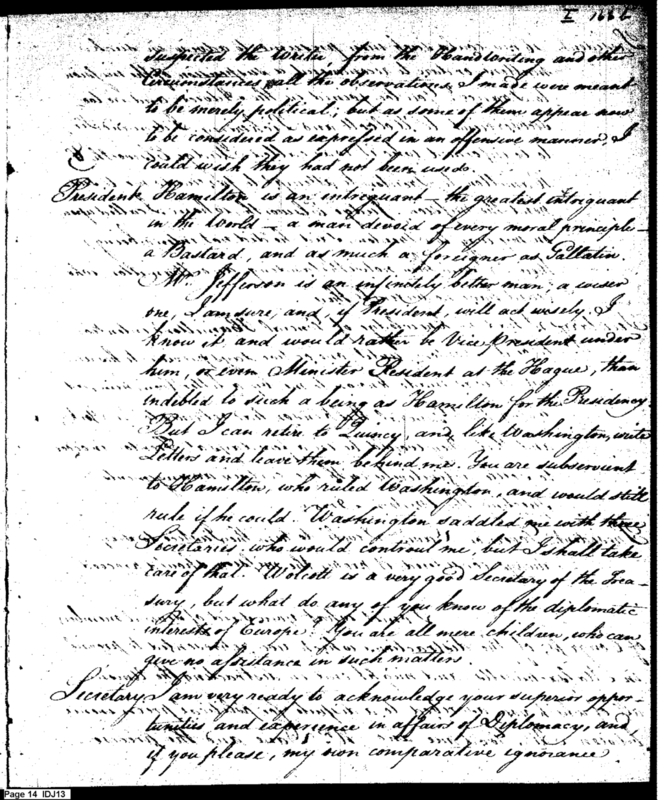 I 166 L
suspected the writer, from the Handwriting and other
Circumstances; all the observations, I made were meant
to be merely political; but as some of them appear now
to be considered as expressed in an offensive manner, I
could wish they had not been used.
President. Hamilton is an intriguant — the greatest intriguant
in the World — a man devoid of every moral principle —
a Bastard, and as much a foreigner as Gallatin.
Mr. Jefferson is an infinitely better man; a wiser
one, I am sure, and, if President, will act wisely. I
know it, and would rather be Vice President under
him, or even Minister Resident at the Hague, than
indebted to such a being as Hamilton for the Presidency.
But I can retire to Quincy, and, like Washington, write
Letters and leave them behind me. You are subservient
to Hamilton, who ruled Washington, and would still
rule if he could. Washington saddled me with three
Secretaries who would controul me, but I shall take
care of that. Wolcott is a very good Secretary of the Trea-
sury, but what do any of you know of the diplomatic
interests of Europe? You are all mere children, who can
give no assistance in such matters.
Secretary. I am very ready to acknowledge your superior oppor-
tunities and experience in affairs of Diplomacy, and,
if you please, my own comparative ignorance.
Page 14 IDJ13